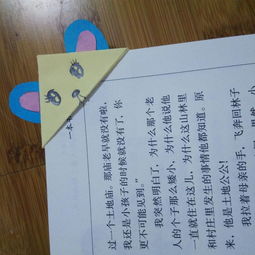 一本
过一个土地庙。那庙老早就没有啦，
我还是小孩子的时候就没有了，你
更不可能见到。”
我突然明白了，为什么那个老
人的个子那么矮小，为什么他说他
一直就住在这儿，为什么这山林里
和村庄里发生的事情他都知道。原
来，他是土地公公！
我拉着母亲的手，飞奔回林子